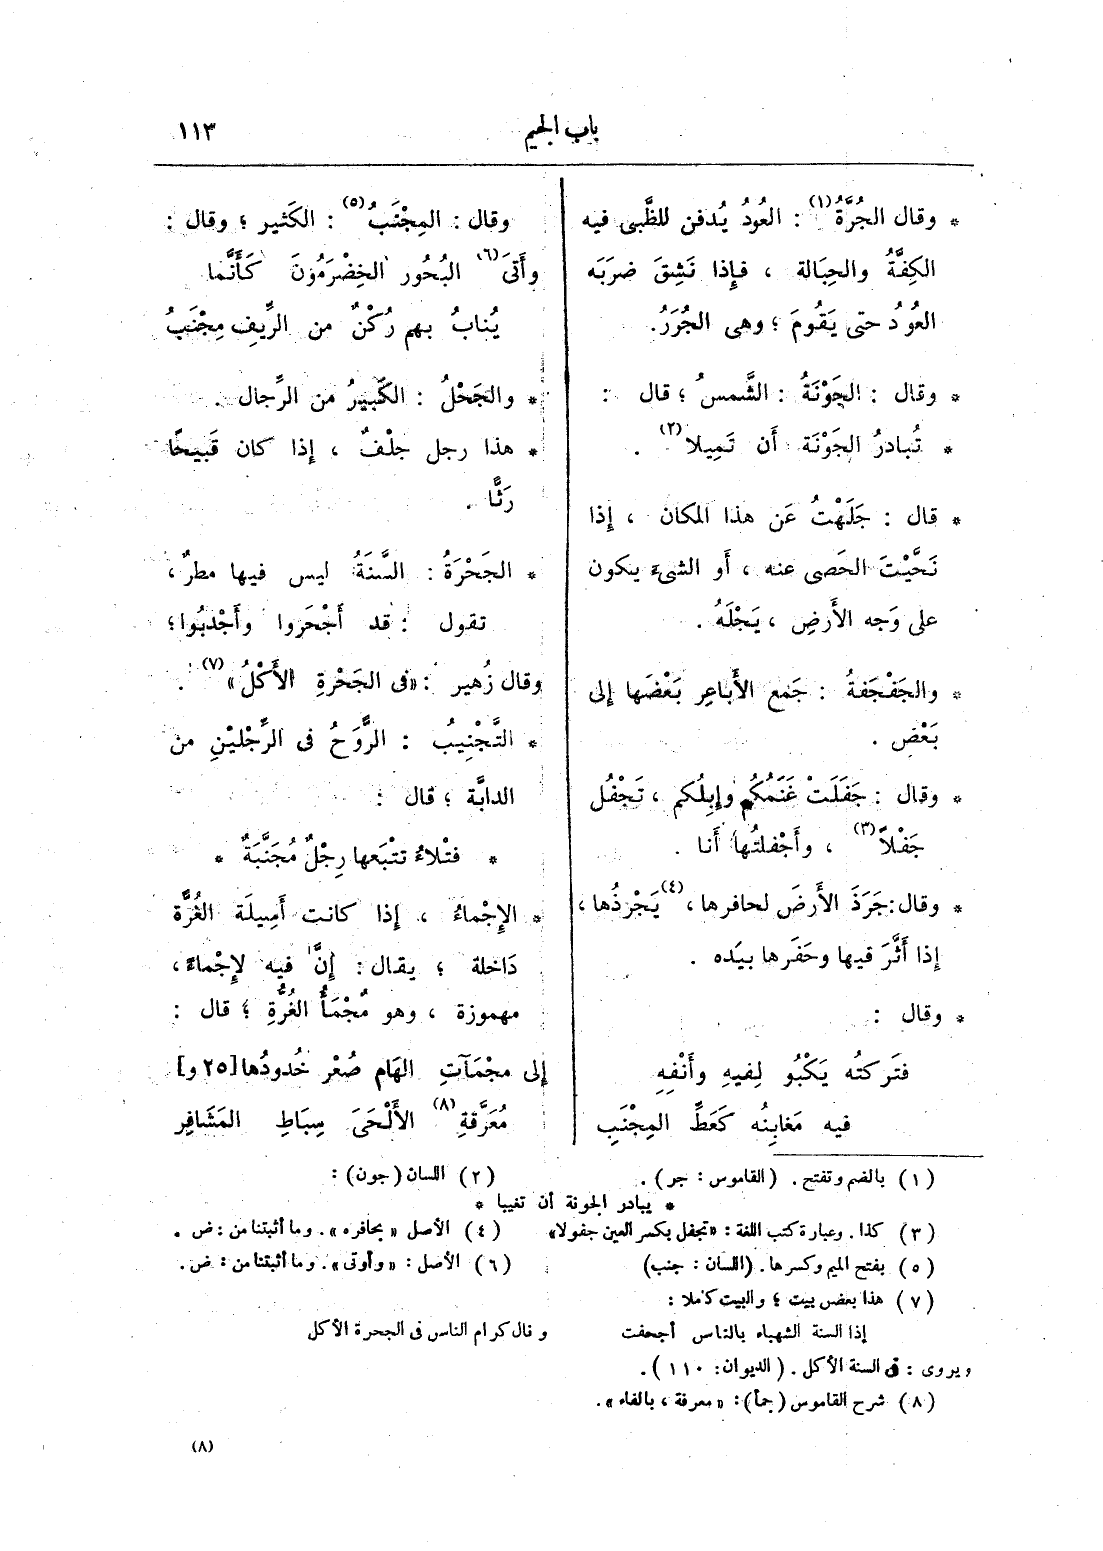 باب الجيم
١١٣
* وقال الجُرَّةُ(١) : العُودُ يُدفن للظَّبى فيه
الكِفَّةُ والحِبَالة ، فإِذا نَشِقَ ضرَبَه
العُودُ حتى يَقُومَ ؛ وهى الجُرَرُ.
* وقال : الجَوْنَةُ : الشَّمسُ ؛ قال :
* تُبادرُ الجَوْنَة أَن تَميلا(٢) .
* قال : جَلَهْتُ عَن هذا المكان ، إِذا
نَحَّيْتَ الحَصى عنه ، أَو الشىءَ يكون
على وَجه الأَرضِ ، يَجْلَهُ .
* والجَفْجَفةُ : جَمع الأَباعِر بَعْضَها إِلى
بَعْض .
* وقال : جَفَلَتْ غَنَمُكُم وإِبِلُكم ، تَجْفُل
جَفْلاً(٣) ، وأَجْفلتُها أَنا .
* وقال: جَرَذَ الأَرضَ لحافرها،(٤) يَجْرذُها ،
إِذا أَثَّرَ فيها وحَفَرها بيَده .
* وقال :
فتَركتُه يَكْبُو لِفيهِ وأَنْفِهِ
فيه مَغابِنُه كَعَطِّ المِجْنَبِ
وقال : المِجْنَبُ(٥) : الكَثير ؛ وقال :
وأَتَى(٦) البُحُور الخِضْرَمُونَ كَأَنَّما
يُنابُ بهم رُكْنٌ من الرِّيفِ مِجْنَبُ
* والجَحْلُ : الكَبيرُ من الرِّجال .
* هذا رجل جلْفٌ ، إِذا كان قَبيحًا
رَثًّا .
* الجَحْرَةُ : السَّنَةُ ليس فيها مطرٌ ،
تقول : قد أَجْحَروا وأَجْدَبُوا؛
وقال زُهير : «فى الجَحْرةِ الأَكْلُ»(٧) .
* التَّجْنِيبُ : الرَّوَحُ فى الرِّجْلَيْنِ من
الدابَّة ؛ قال :
* فتْلاءُ تتْبَعها رِجلٌ مُجَنَّبَةٌ *
* الإِجْماءُ ، إِذا كانت أَسِيلَة الغُرَّة
دَاخلة ؛ يقال : إِنَّ فيه لإِجْماءً،
مهموزة ، وهو مُجْمَأُ الغُرَّةِ ؛ قال :
إِلى مجْمَآتِ الهَام صُعْر خُدودُها [٢٥ و]
مُعَرَّقةِ(٨) الأَلْحَى سِبَاطِ المَشَافِر
(١) بالضم وتفتح . (القاموس : جر) .
(٢) اللسان (جون) :
* يبادر الجونة أن تغيبا *
(٣) كذا . وعبارة كتب اللغة : «تجفل بكسر العين جفولا»
(٤) الأصل «بحافره» . وما أثبتنا من : ض .
(٥) بفتح الميم وكسرها . (اللسان : جنب)
(٦) الأصل : «وأوتى» . وما أثبتنا من : ض .
(٧) هذا بعض بيت ؛ والبيت كاملا :
إذا السنة الشهباء بالناس أجحفت
ونال كرام الناس فى الجحرة الأكل
ويروى : فى السنة الأكل . (الديوان: ١١٠) .
(٨) شرح القاموس (جمأ): «معرفة ، بالفاء» .
(٨)